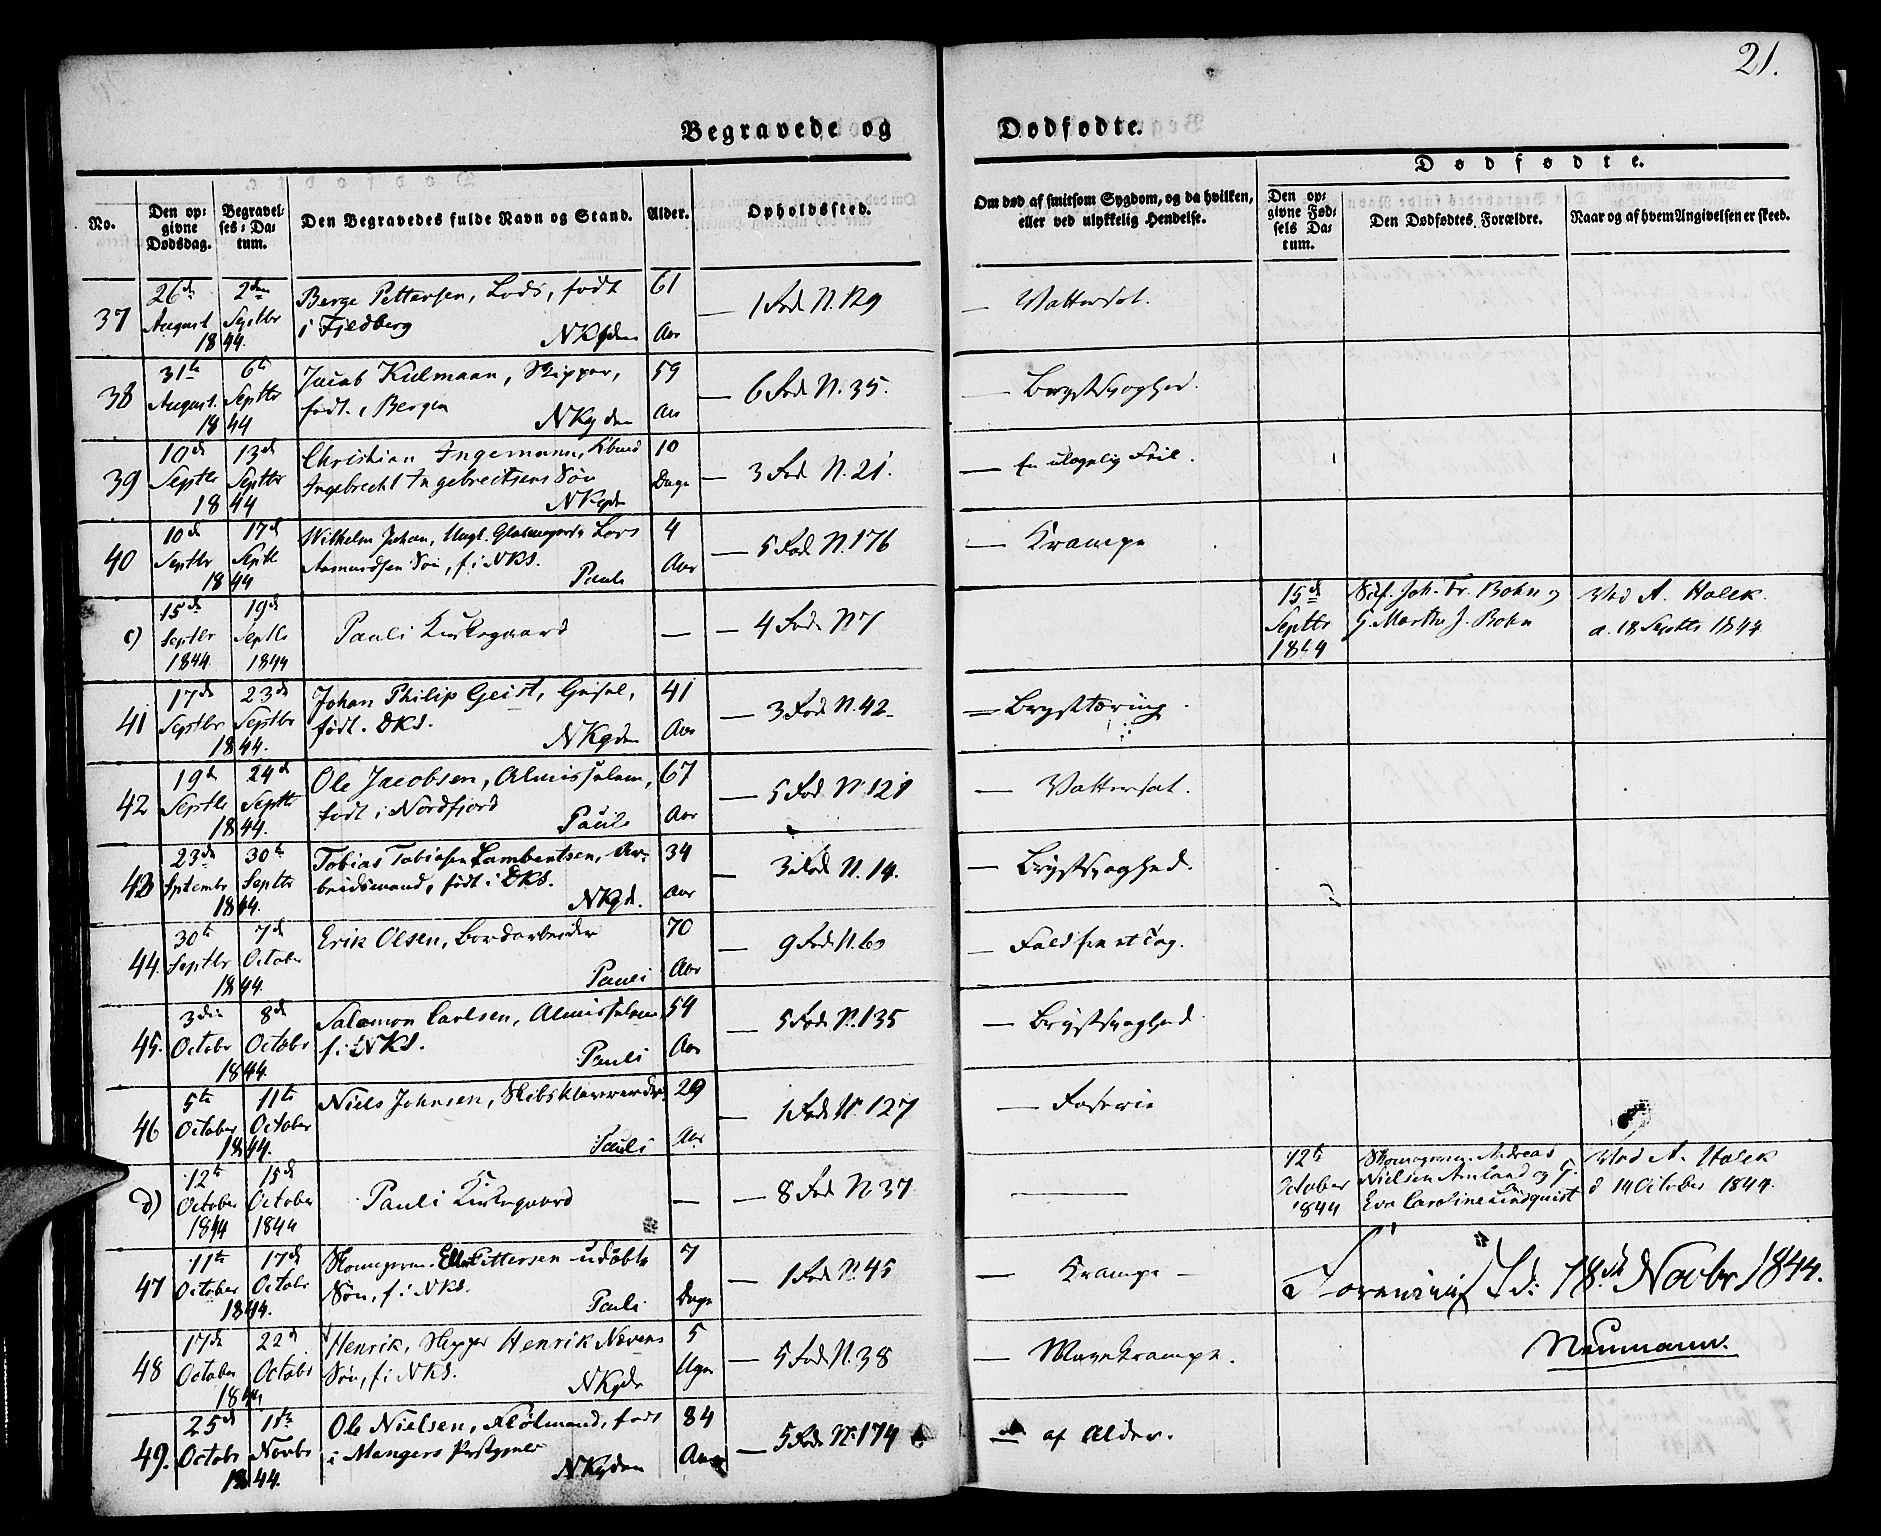 21.
Begravede og Dødfødte.
Dødfødte.
No.
Den opgivne Dødsdag.
Begravelses-Datum.
Den Begravedes fulde Navn og Stand.
Alder.
Opholdssted.
Om død af smitsom Sygdom, og da hvilken, eller ved ulykkelig Hendelse.
Den opgivne Fødsels Datum.
Den Dødfødtes Forældre.
Naar og af hvem Angivelsen er skeed.
37 26de August 2den Septbr 1844. Berge Pettersen, Lods, født i Fjeldberg NKgden 61 Aar — 1 Rode N. 129 — Vattersot.
38 31te August. 6te Septbr 1844 Jacob Kulmann, Skipper, født i Bergen NKgden 59 Aar — 6 Rode N. 35. — Brystsyghed.
39 10de Septbr 13de Septbr 1844 Christian Ingemann, Ingebrecht Ingebrectsens Søn NKgde 10 Dage — 3 Rode N. 21. — Feil.
40 10de Septbr 17de Septbr 1844 Wilhelm Johan, Lars Asmundsen Søn, f. i NKS. Pauli 4 Aar — 5 Rode N. 176 — Krampe
c) 15de Septbr 1844. 19de Septbr 1844 Pauli Kirkegaard — — 4 Rode N 7 15de Septbr 1844 Joh. Fr. Bohn og G. Marthe J. Bohn Ved A. Holck. d. 18 Septbr 1844
41 17de Septbr 23de Septbr 1844. Johan Philip Geist, født. DKS. NKgden 41 Aar — 3 Rode N. 42. — Brysttæring.
42 19de Septbr 24de Septbr 1844. Ole Jacobsen, Almisselem, født i Nordfjord Pauli 67 Aar — 5 Rode N. 121 — Vattersot.
43 23de Septembr 30te Septbr 1844. Tobias Tobiasen Lambertsen, Arbeidsmand, født i DKS. NKgd. 34 Aar — 3 Rode N. 14. — Brystsyghed.
44. 30te Septbr 7de October 1844. Erik Olsen, Bordarbeider Pauli 70 Aar — 9 Rode N. 60 — Fald fra et Tag.
45. 3die Octobr 8de Octobr 1844. Salamon Carlsen, Almisselem, f. i NKS. Pauli 54 Aar — 5 Rode N. 135 — Brystsyghed
46 5te October 11te October 1844. Niels Johnsen, Skibstømmermand Pauli 29 Aar — 1 Rode N. 127 —
d) 12te October 1844 15de October 1844 Pauli Kirkegaard — — 8 Rode N 37 12te October 1844 Skomagersv. Andreas Nielsen Amland og G. Eva Caroline Lindquist Ved A. Holck d 14 October 1844.
47 11te October 17de Octobr 1844. Skomagersv. Pettersen udøbte Søn, f. i NKS. Pauli 7 Dage — 1 Rode N. 45 — Krampe —
48 17de October 22de Octobr 1844 Henrik, Skipper Henrik Nævens Søn, f. i NKS. NKgde 5 Uger — 5 Rode N. 38 — Mavekrampe.
Neumann.
d: 18de Novbr 1844.
49. 25de Octobr 1ste Novbr 1844. Ole Nielsen, født i Mangers Præstegjeld NKgden 84 Aar — 5 Rode N. 174 — af Alder.